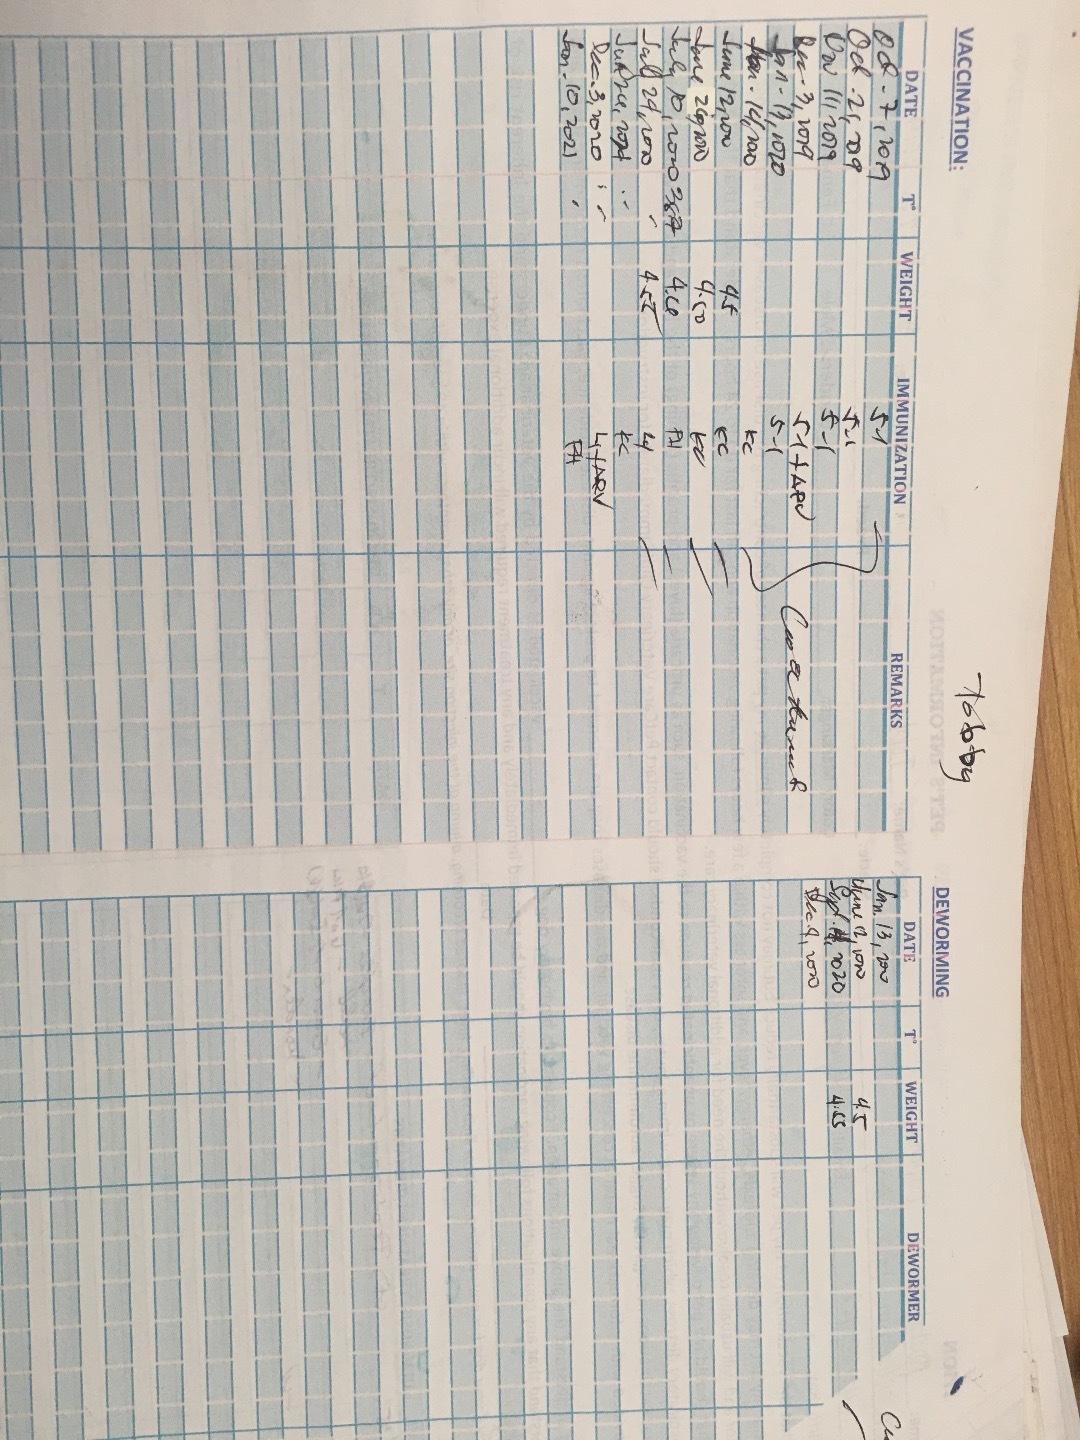 Tobby
VACCINATION:
DATE T° WEIGHT IMMUNIZATION REMARKS
Oct - 7, 2019 5-1
Oct - 21, 2019 5-1
Nov 11, 2019 5-1
Dec. 3, 2019 5-1 + ARV
Jan - 13, 2020 5-1
Jan - 14, 2020 KC
June 12, 2020 4.5 KC
June 26, 2020 4.50 KC
July 10, 2020 4.60 PH
July 24, 2020 4.55 L4
KC
Dec. 3, 2020 L4 + ARV
Jan. 10, 2021 PH
DEWORMING
DATE T° WEIGHT DEWORMER
Jan. 13, 2020
June 12, 2020 4.5
Sept. 2020 4.55
Dec 9, 2020